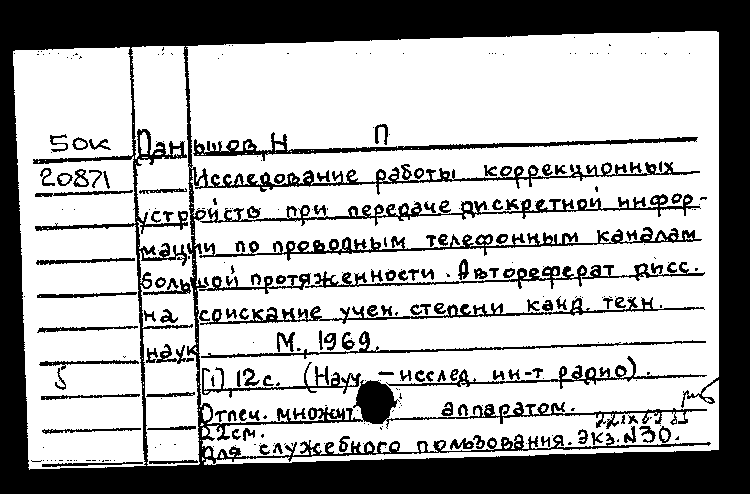 50к Даньшов, Н П
20871 Исследование работы коррекционных
устройств при передаче дискретной инфор-
мации по проводным телефонным каналам
большой протяженности. Автореферат дисс.
на соискание учен. степени канд. техн.
наук М., 1969.
5 [1], 12 с. (Науч.-исслед. ин-т радио).
Отпеч. множит. аппаратом.
22 см.
Для служебного пользования. Экз. N 30.